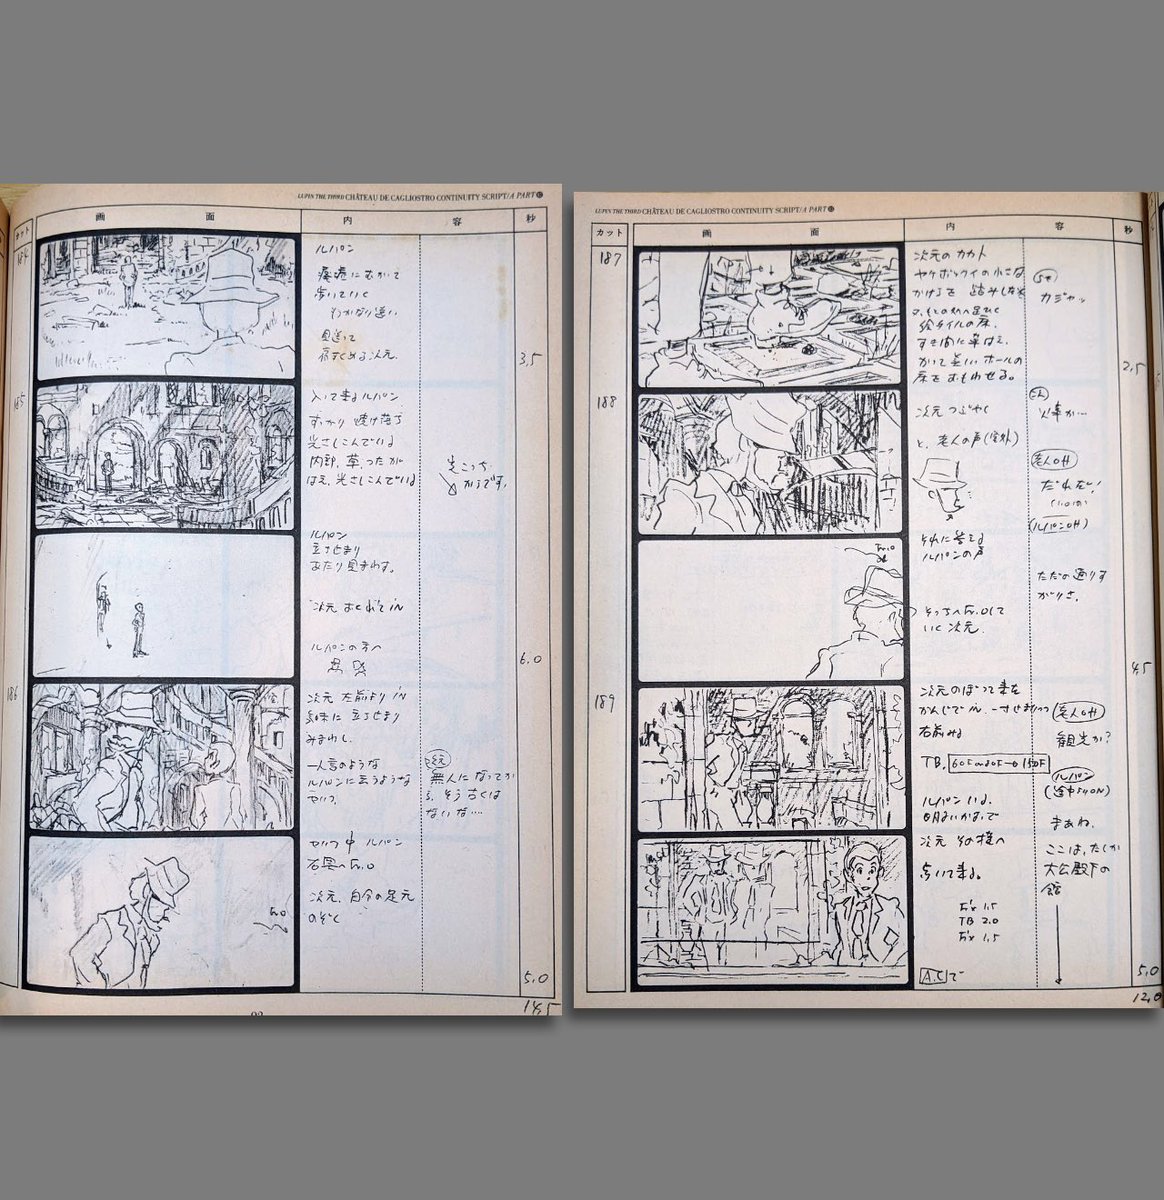 LUPIN THE THIRD CHÂTEAU DE CAGLIOSTRO CONTINUITY SCRIPT/A PART
カット
画 面
内 容
秒
184
ルパン
廃墟にむかって
歩いていく
わかなり遅い
見送って
肩すくめる次元
3,5
185
入って来るルパン
すっかり焼け落ち
光さしこんでいる
内部、草 つたが
はえ、光さしこんでいる
ルパン
立ち止まり
あたり見まわす。
次元 おくれて in
ルパンの方へ
6.0
186
次元 左前より in
立ち止まり
みまわし
一人言のような
ルパンに云うような
セリフ
次元
無人になってか
ら、そう古くは
ないな…
セリフ中 ルパン
右奥へ Fr.O
次元、自分の足元
のぞく
Fr.O
5,0
14,5
LUPIN THE THIRD CHÂTEAU DE CAGLIOSTRO CONTINUITY SCRIPT/A PART
カット
画 面
内 容
秒
187
次元のカカト
ヤケボックイの小さな
かけらを 踏みしだく
絵タイルの床、
すき間に草はえ、
かつて美しいホールの
床をおもわせる。
カジャッ
2,5
188
次元 つぶやく
と、老人の声(室外)
それに答える
ルパンの声
そっちへ Fr.O して
いく次元
火事か…
老人off
だれだい!
ルパンoff
ただの通りす
がりさ。
Fr.O
4,5
189
次元のぼって来る
かんじで in
右前みる
TB.
ルパンいる。
次元 その横へ
歩いて来る。
Fix 1.5
TB 2.0
Fix 1.5
A.Cで
老人off
観光か?
ルパン
(途中よりON)
まあね。
ここは、たしか
大公殿下の
館
5,0
12,0